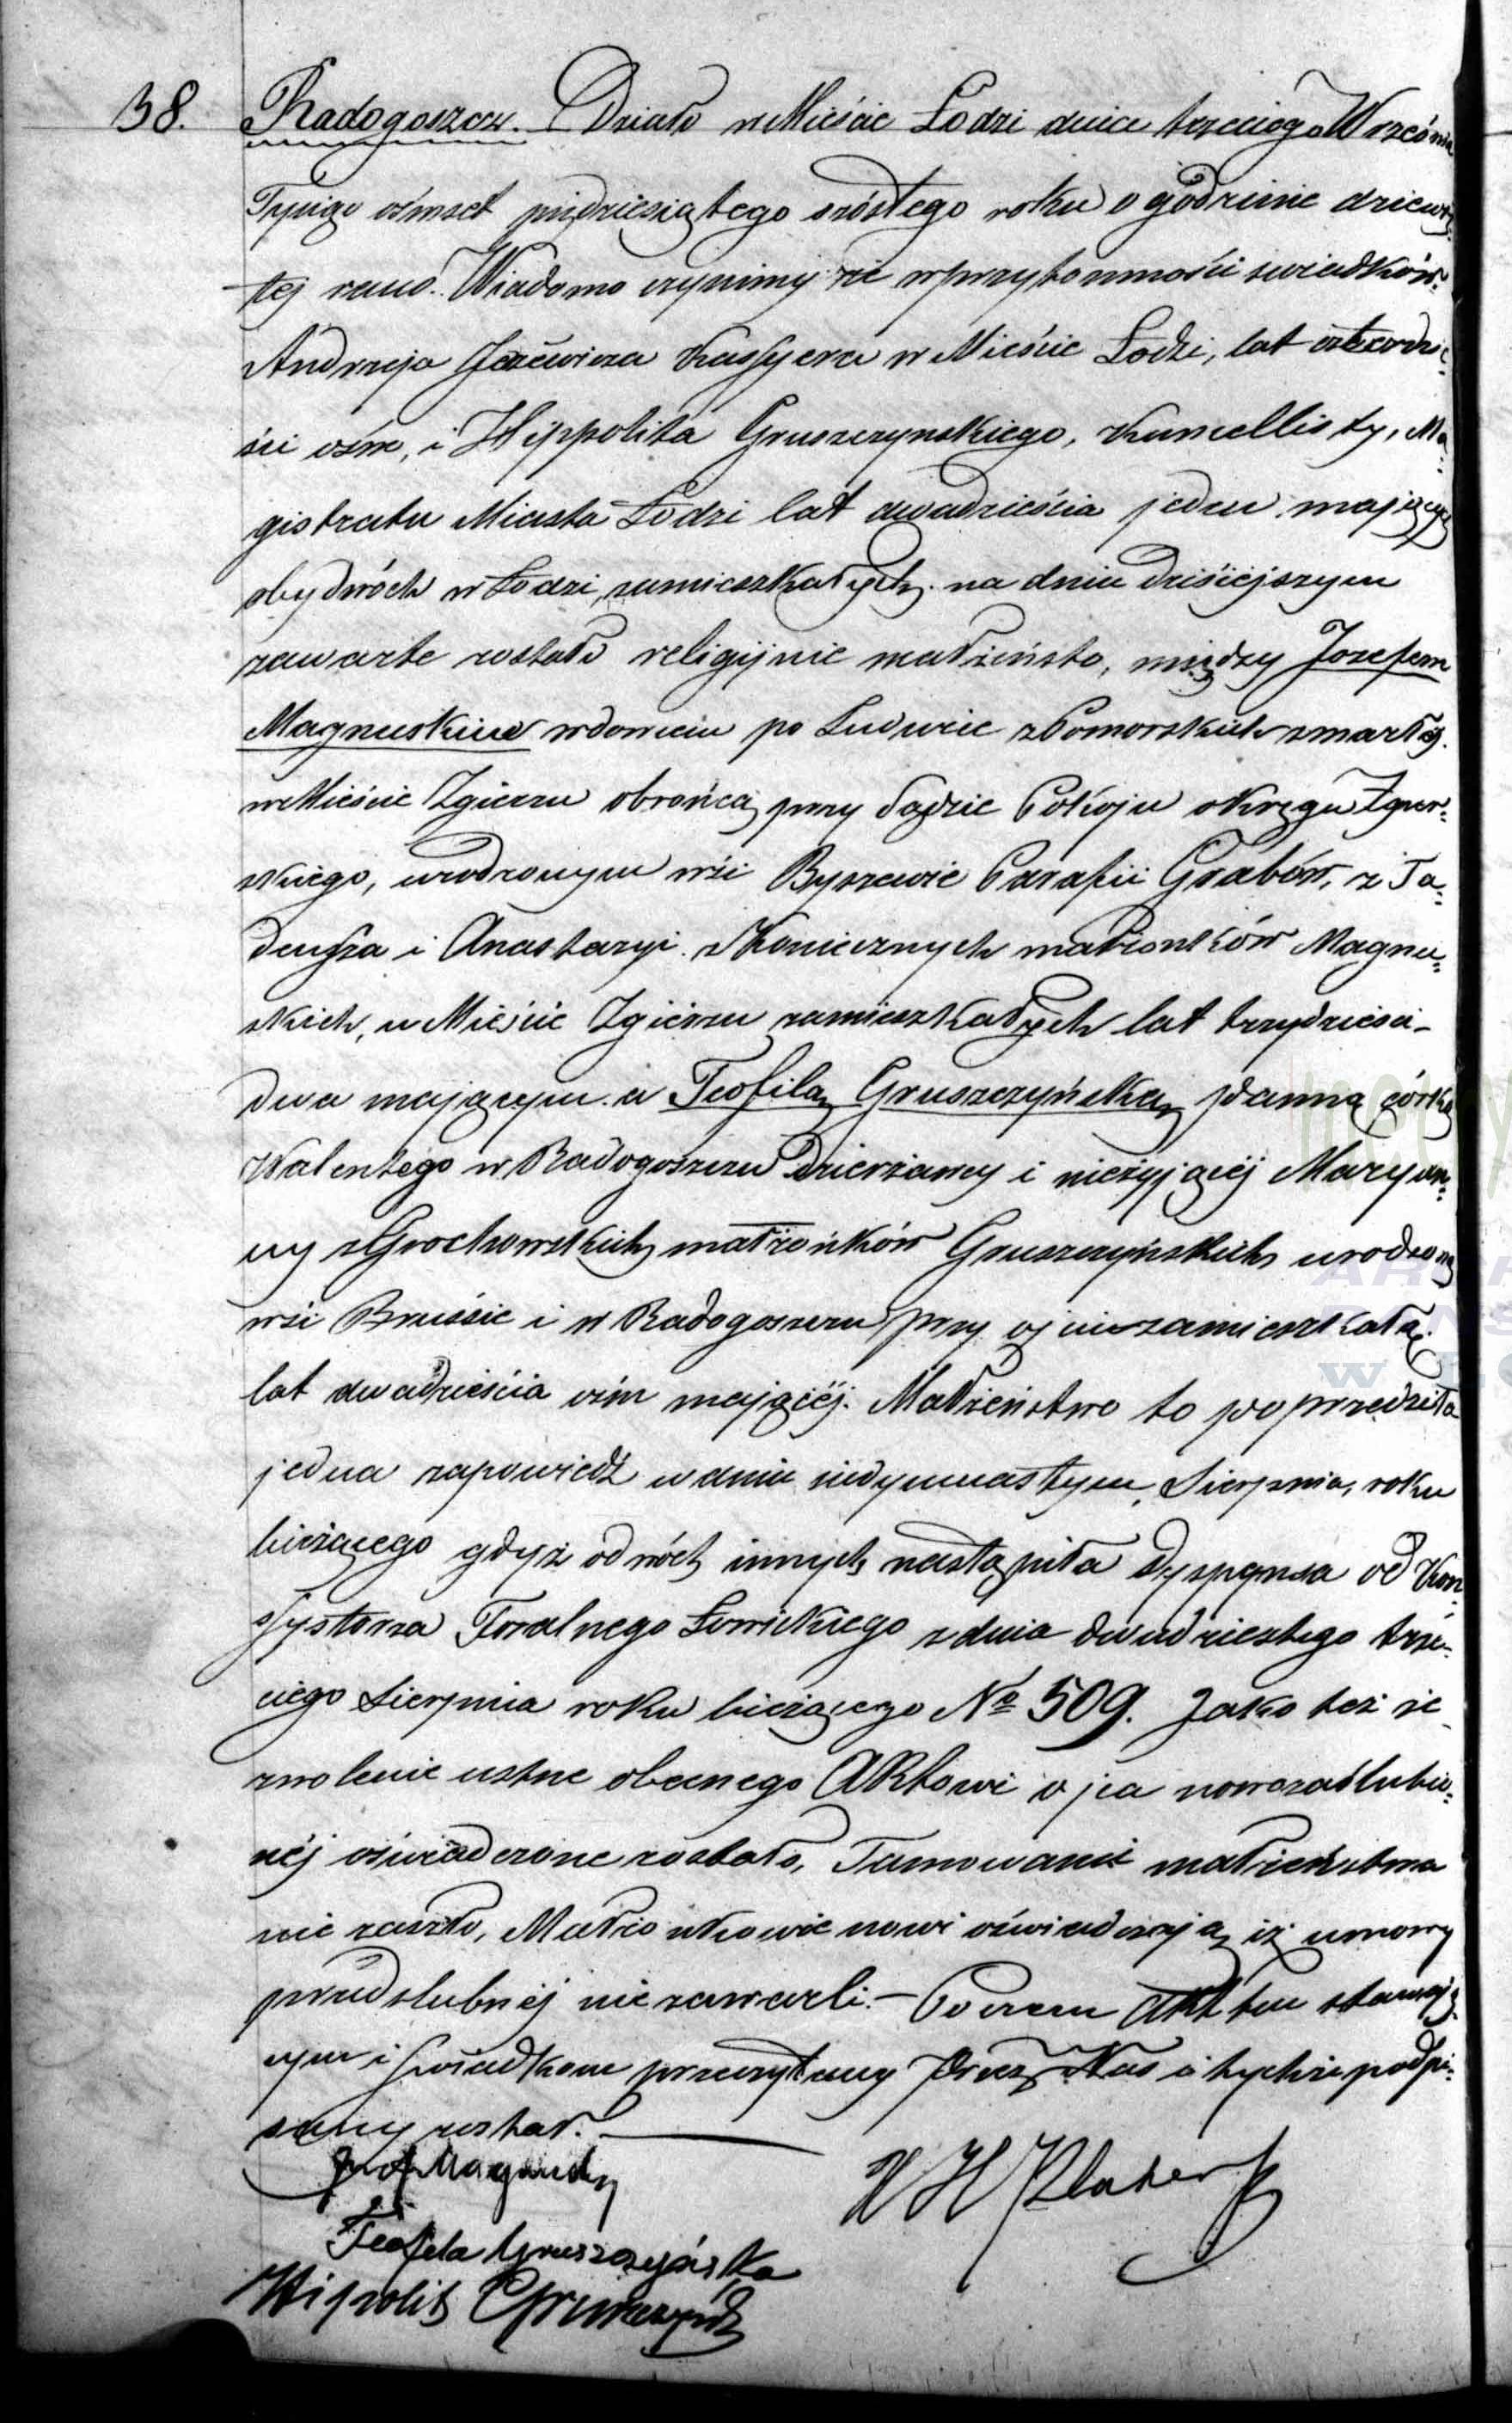 38. Radogoszcz. Działo w Mieście Łodzi dnia trzeciego Września
Tysiąc ośmset piędziesiątego szóstego roku o godzinie dziewią-
tej rano. Wiadomo czynimy że w przytomności swiadków
Andrzeja Kassyera w Mieście Łodzi, lat czterdzie-
ści ośm, i Hippolita Gruszczynskiego, Kancellisty, Ma-
gistratu Miasta Łodzi lat dwadzieścia jeden mających
obydwóch w Łodzi zamieszkałych na dniu dzisiéjszym
zawarte zostało religijnie małżeństo, między Jozefem
Magnuskim wdowcem po Ludwice z Pomorskich zmarłéj
w Mieście Zgierzu obrońcą przy Sądzie Pokoju okręgu Zgier-
skiego, urodzonym wsi Byszewie Parafii Grabów, z Ta-
deusza i Anastazyi z Koniecznych małżonków Magnu-
skich, w Mieście Zgierzu zamieszkałych lat trzydzieści
dwa mającym a Teofilą Gruszczyńską panną córką
Walentego w Radogoszczu Dzierżawcy i nieżyjącéj Maryan-
ny z Grochowskich małżonków Gruszczyńskich urodzoną
wsi i w Radogoszczu przy ojcu zamieszkałą
lat dwadzieścia ośm mającéj. Małżeństwo to poprzedziła
jedna zapowiedź w dniu siedymnastym Sierpnia, roku
bieżącego gdyż od dwóch innych nastąpiła dyspensa od Kon-
systorza Foralnego Łowickiego z dnia dwudziestego trze-
ciego Sierpnia roku bieżącego № 509. Jako też ze
zwolenie ustne obecnego Aktowi ojca nowozaślubio-
néj oświadczone zostało, Tamowanie małżeństwa
nie zaszło, Małżonkowie nowi oświadczają iż umowy
przedslubnéj nie zawarli. — Poczem Akt ten stawają-
cym i Swiadkom przeczytany Przez Nas i tychże podpi-
sany został. —
Jozef Magnuski
X H Plater
Teofila Gruszczyńska
Hipolit Gruszczyński